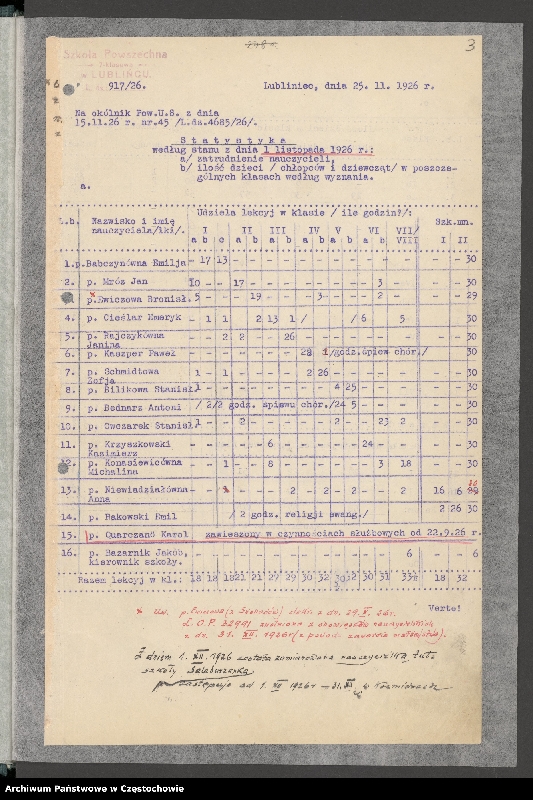 3
Szkoła Powszechna
w LUBLIŃCU.
917/26.
Lubliniec, dnia 25. 11. 1926 r.
Na okólnik Pow.U.S. z dnia
15.11.26 r. nr.45 /L.dz.4685/26/.
Statystyka
według stanu z dnia 1 listopada 1926 r.:
a/ zatrudnienie nauczycieli,
b/ ilość dzieci / chłopców i dziewcząt/ w poszcze-
gólnych klasach według wyznania.
a.
L.b. Nazwisko i imię nauczyciela/lki/. Udziela lekcyj w klasie / ile godzin?/: Szk.mn.
I II III IV V VI VII/VIII I II
a b c a b a b a b a b
1. p.Babczynówna Emilja - 17 13 - - - - - - - - - - - - 30
2. p. Mróz Jan 10 - - 17 - - - - - - - 3 - - - 30
p.Ewiczowa Bronisł. 5 - - - 19 - - - 3 - - - 2 - - - 29
4. p. Cieślar Emeryk - 1 1 2 13 1 / - - - /6 5 - - 30
5. p. Rajczykówna Janina - - 2 2 - - 26 - - - - - - - - 30
6. p. Kaszper Paweł - - - - - - - 28 1/godz.śpiew chór./ - - 30
7. p. Schmidtowa Zofja 1 - 1 - - - - 2 26 - - - - - - - 30
8. p. Bilikowa Stanisł. 1 - - - - - - - - 4 25 - - - - - 30
9. p. Bednarz Antoni / 2/2 godz. śpiewu chór./24 5 - - - - - 30
10. p. Owczarek Stanisł. 1 - - 2 - - - - - 2 - - 23 2 - - 30
11. p. Krzyszkowski Kazimierz - - - - - 6 - - - - - 24 - - - - 30
12. p. Konasiewiczówna Michalina - - 1 - - 8 - - - - - - 3 18 - - 30
13. p. Niewiadziałówna Anna - - - - - 2 - 2 - 2 - - 2 16 6 29 30
14. p. Rakowski Emil / 2 godz. religji ewang./ 2 26 30
15. p. Quarczaoß Karol zawieszony w czynnościach służbowych od 22.9.26 r.
16. p. Bazarnik Jakób, kierownik szkoły. - - - - - - - - - - - - 6 - - 6
Razem lekcyj w kl.: 18 18 18 21 21 27 29 30 32 30 32 30 31 18 32
Verte!
Z dniem 1. XII. 1926 została zamianowana nauczycielką tut.
szkoły
od 1. XII 1926 r
Archiwum Państwowe w Częstochowie